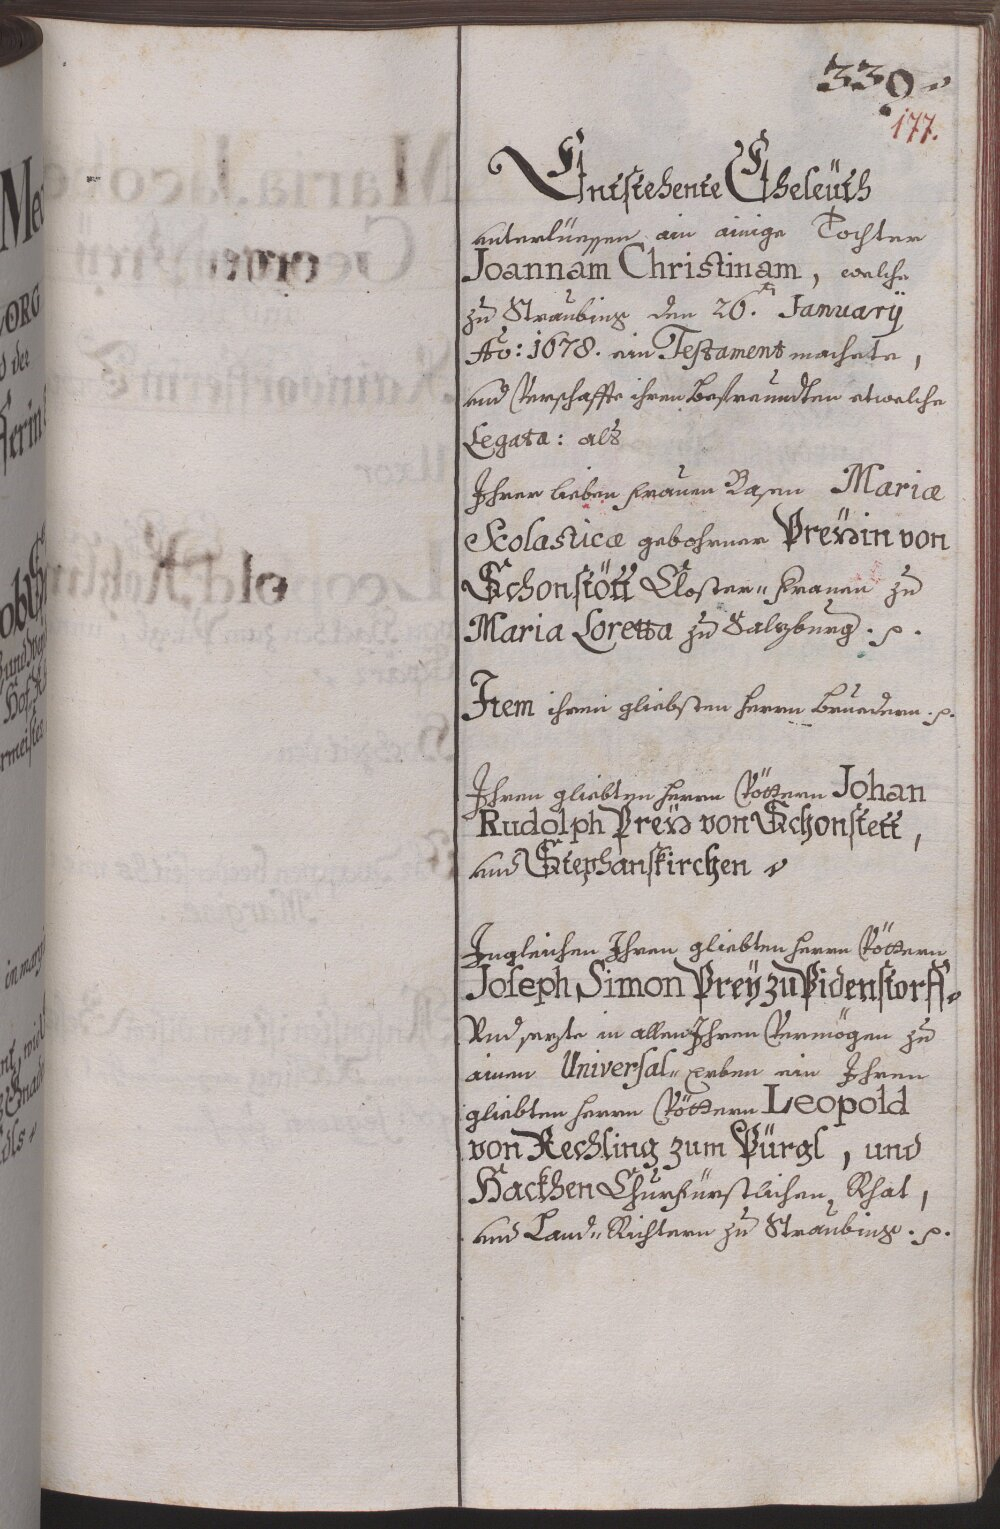 339.
177.
Entstehente Eheleüth
unterlüessen ain ainige Tochter
Joannam Christinam, welche
zu Straubing den 26. January
Ao: 1678. ein Testament machete,
und Verschaffte ihren Befreundten etwelche
Legata: als
Ihrer lieben Frauen Basen Mariæ
Scolasticæ gebohrner Preÿsin von
Schonstött Closter-Frauen zu
Maria Loretta zu Salzburg.
Item ihren gliebsten Herrn Bruedern
Ihren gliebten Herrn Vöttern Johan
Rudolph Preÿs von Schonstett,
und Stephanskirchen
Ingleichen Ihren gliebten Herrn Vöttern
Joseph Simon Preÿ zu Pidenstorff
Und sezte in allen Ihren Vermögen zu
ainen Universal-Erben ein Ihren
gliebten Herrn Vöttern Leopold
von Rechling zum Pürgl, und
Hackhen Churfürstlichen Rhat,
und Land-Richtern zu Straubing.